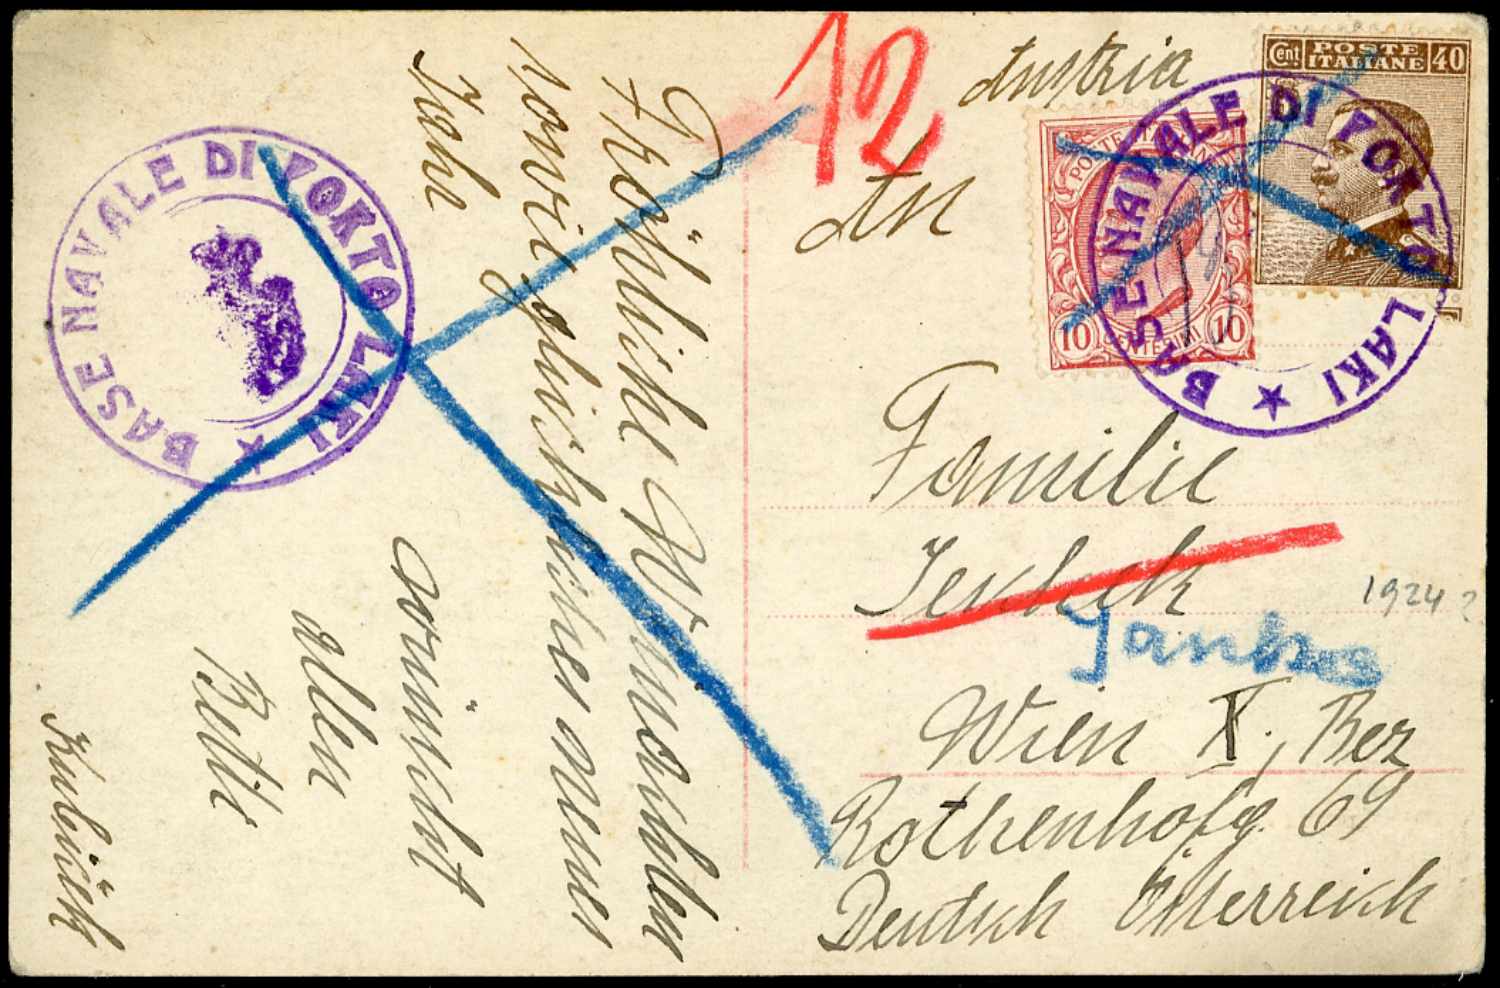 12
Austria
An
Cent. POSTE ITALIANE 40
POSTE
10 CENTESIMI 10
BASE NAVALE DI PORTO LAKI ★
BASE NAVALE DI PORTO LAKI ★
Familie
1924?
Wien X, Bez
Rothenhofg. 69
Deutsch Österreich
Fröhliche Weihnachten
sowie glückliches neues
Jahr
wünscht
allen
Kubiček